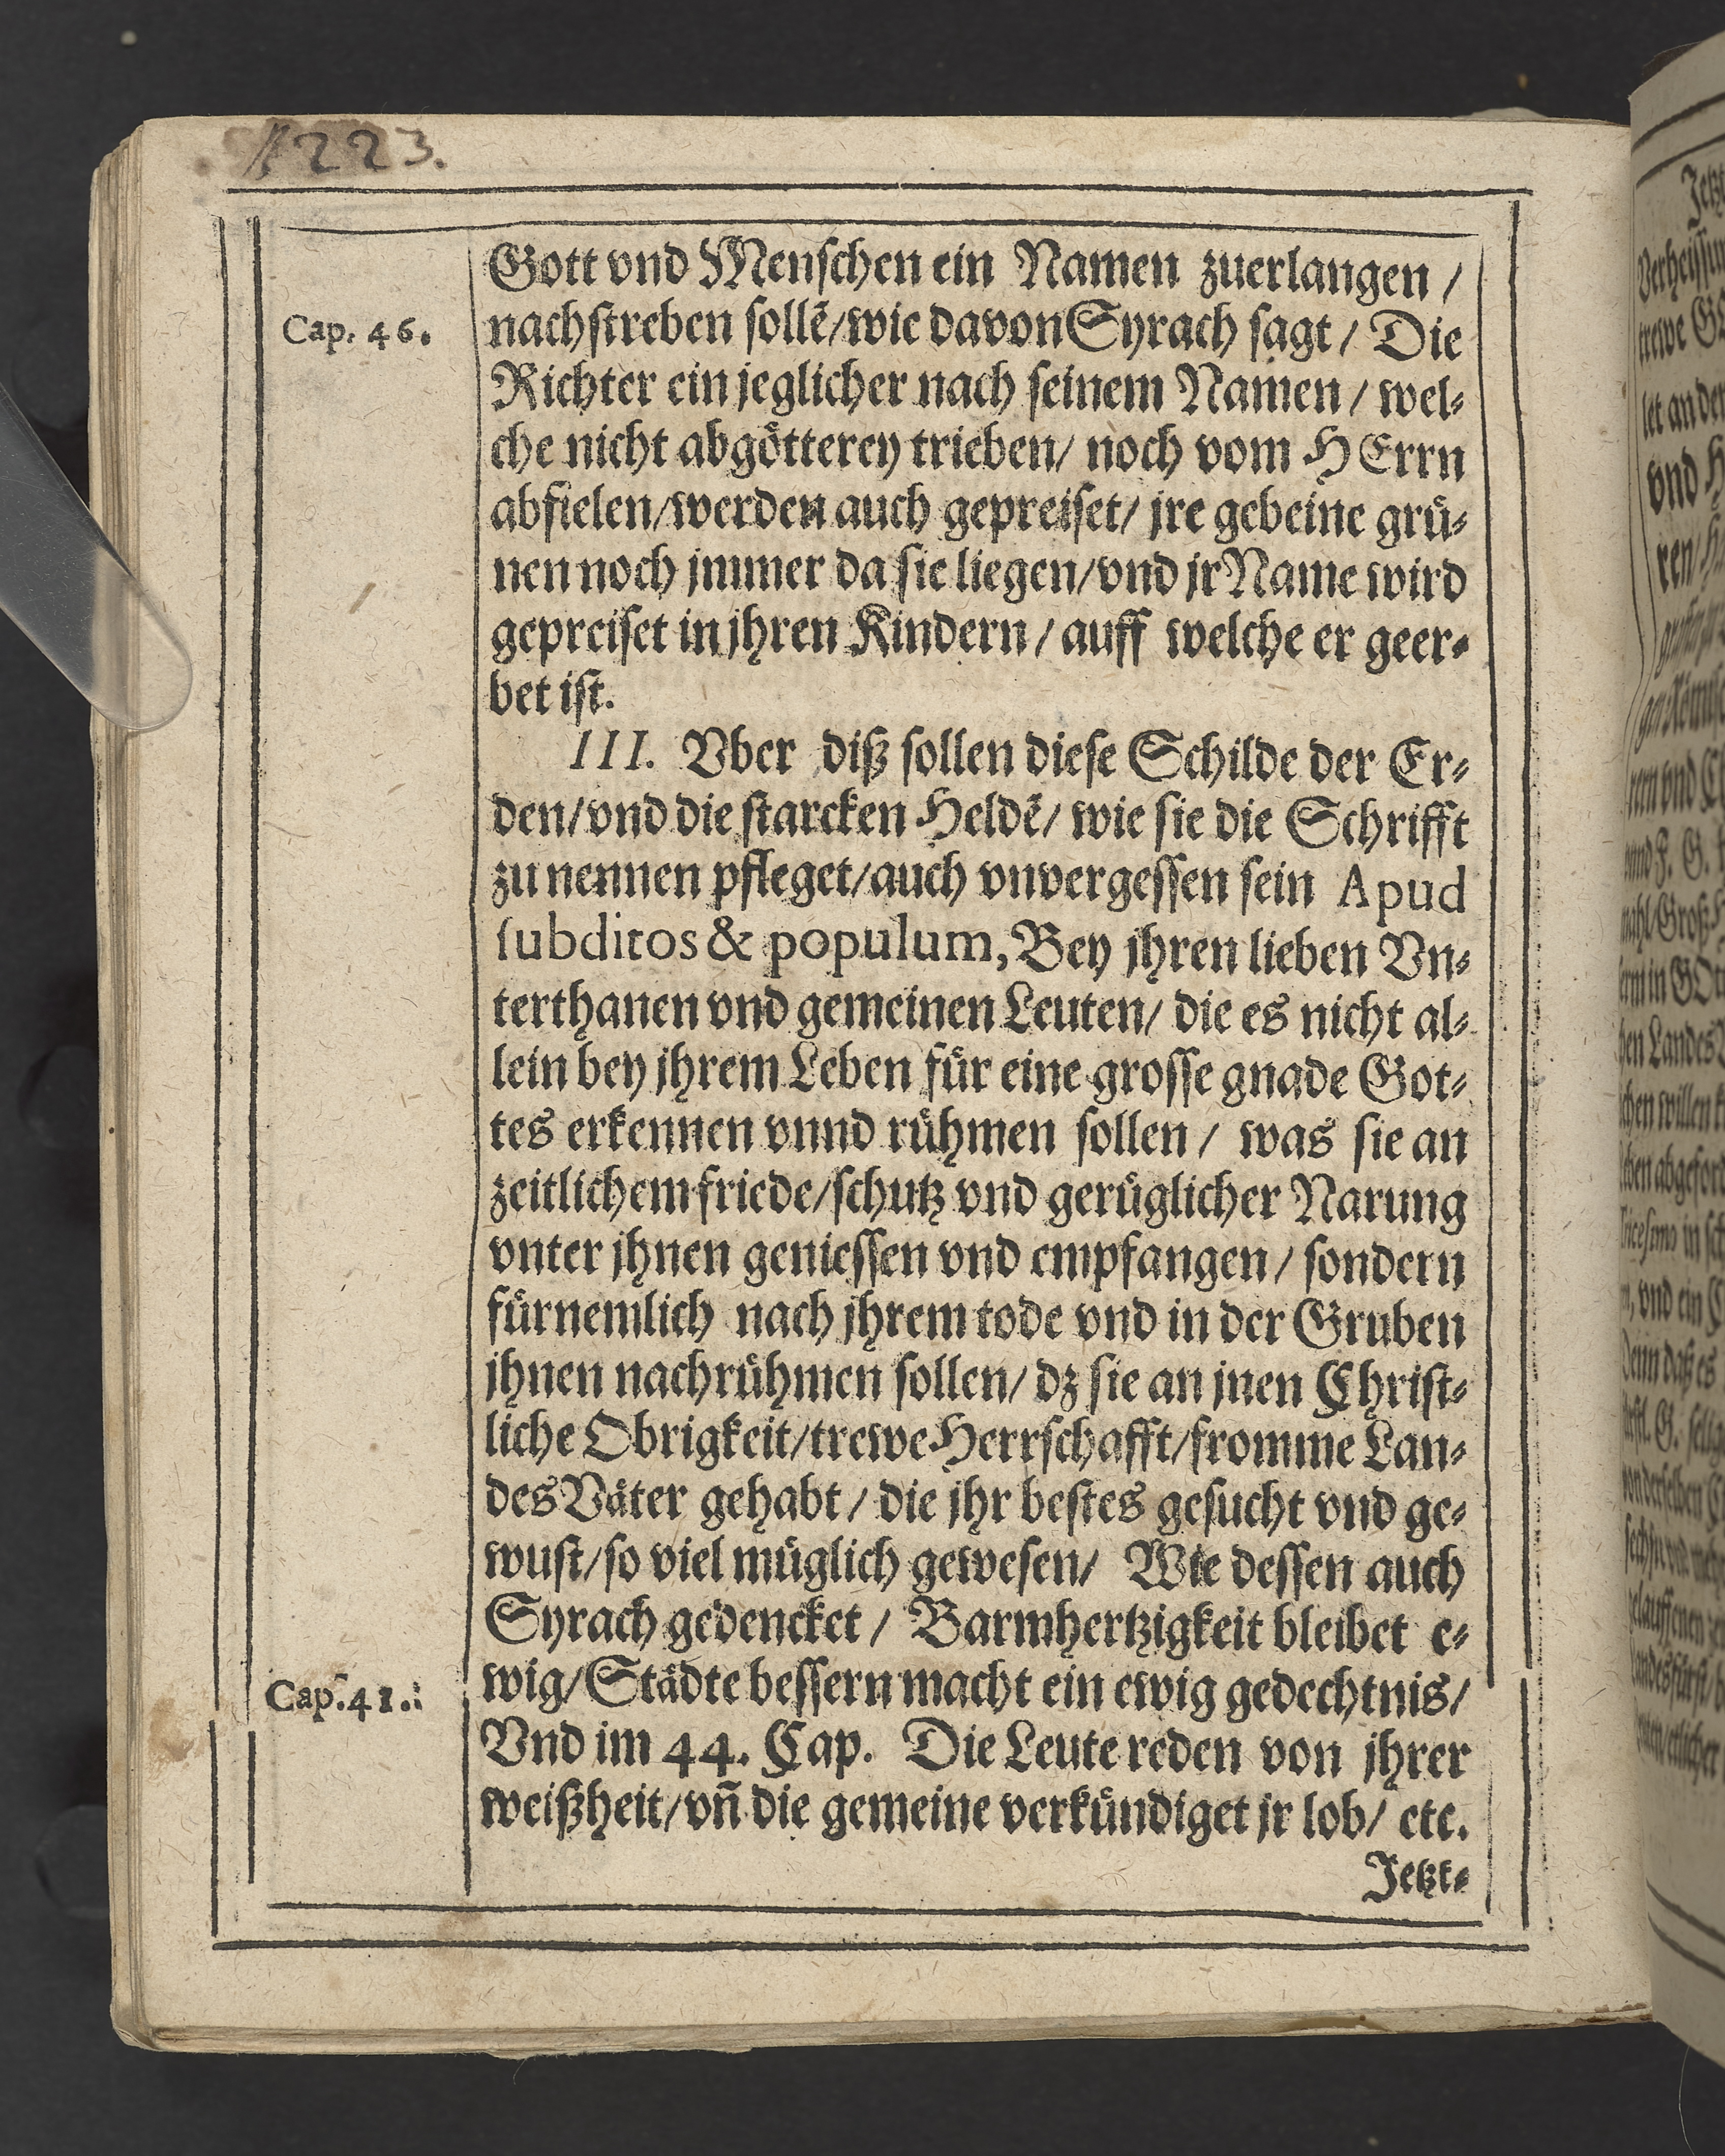 1223.
Gott vnd Menschen ein Namen zuerlangen /
Cap. 46.
nachstreben sollẽ/wie davon Syrach sagt / Die
Richter ein jeglicher nach seinem Namen / wel⸗
che nicht abgötterey trieben/ noch vom HErrn
abfielen/werden auch gepreiset/ jre gebeine grü⸗
nen noch jmmer da sie liegen/vnd jr Name wird
gepreiset in jhren Kindern / auff welche er geer⸗
bet ist.
III. Vber diß sollen diese Schilde der Er⸗
den/vnd die starcken Heldẽ/ wie sie die Schrifft
zu nennen pfleget/auch vnvergessen sein Apud
subditos & populum, Bey jhren lieben Vn⸗
terthanen vnd gemeinen Leuten/ die es nicht al⸗
lein bey jhrem Leben für eine grosse gnade Got⸗
tes erkennen vnnd rühmen sollen / was sie an
zeitlichem friede/schutz vnd gerüglicher Narung
vnter jhnen geniessen vnd empfangen / sondern
fürnemlich nach jhrem tode vnd in der Gruben
jhnen nachrühmen sollen/ dz sie an jnen Christ⸗
liche Obrigkeit/trewe Herrschafft/fromme Lan⸗
des Väter gehabt / die jhr bestes gesucht vnd ge⸗
wust/so viel müglich gewesen/ Wie dessen auch
Syrach gedencket / Barmhertzigkeit bleibet e⸗
Cap. 41.
wig/Städte bessern macht ein ewig gedechtnis/
Vnd im 44. Cap. Die Leute reden von jhrer
weißheit/vñ die gemeine verkündiget jr lob/ etc.
Jetzt⸗